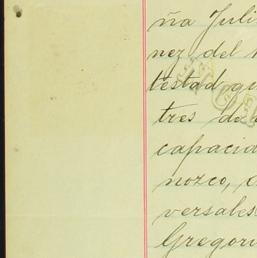 ña Juli
nez del
testad qu
tres de
capacia
nozco,
versales
Gregori